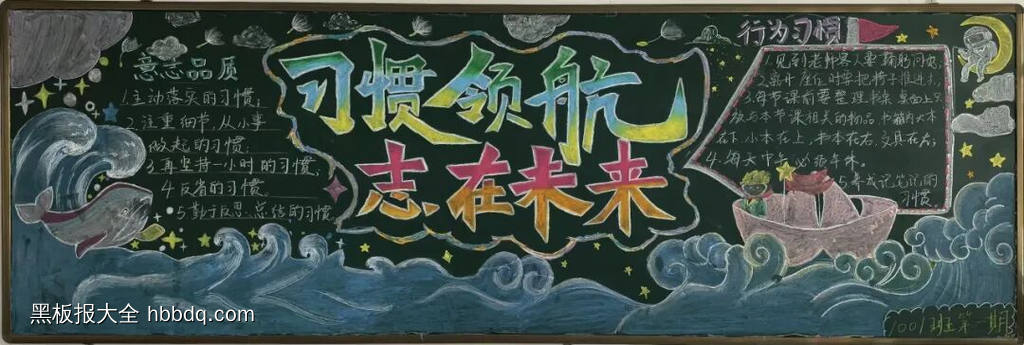 习惯领航
志在未来
意志品质
1.主动落实的习惯,
2.注重细节,从小事
做起的习惯.
3.再坚持一小时的习惯,
4.反省的习惯
5.勤于反思、总结的习惯
行为习惯
1.见到老师客人要鞠躬问好
2.离开座位时要把椅子推进去
3.每节课前要整理书桌,桌面上只
放与本节课相关的物品,书籍的大本
在下,小本在上,书本在右,文具在左,
4.每天中午必须午休.
5.养成记笔记的
习惯
1001班第一期
黑板报大全 hbbdq.com